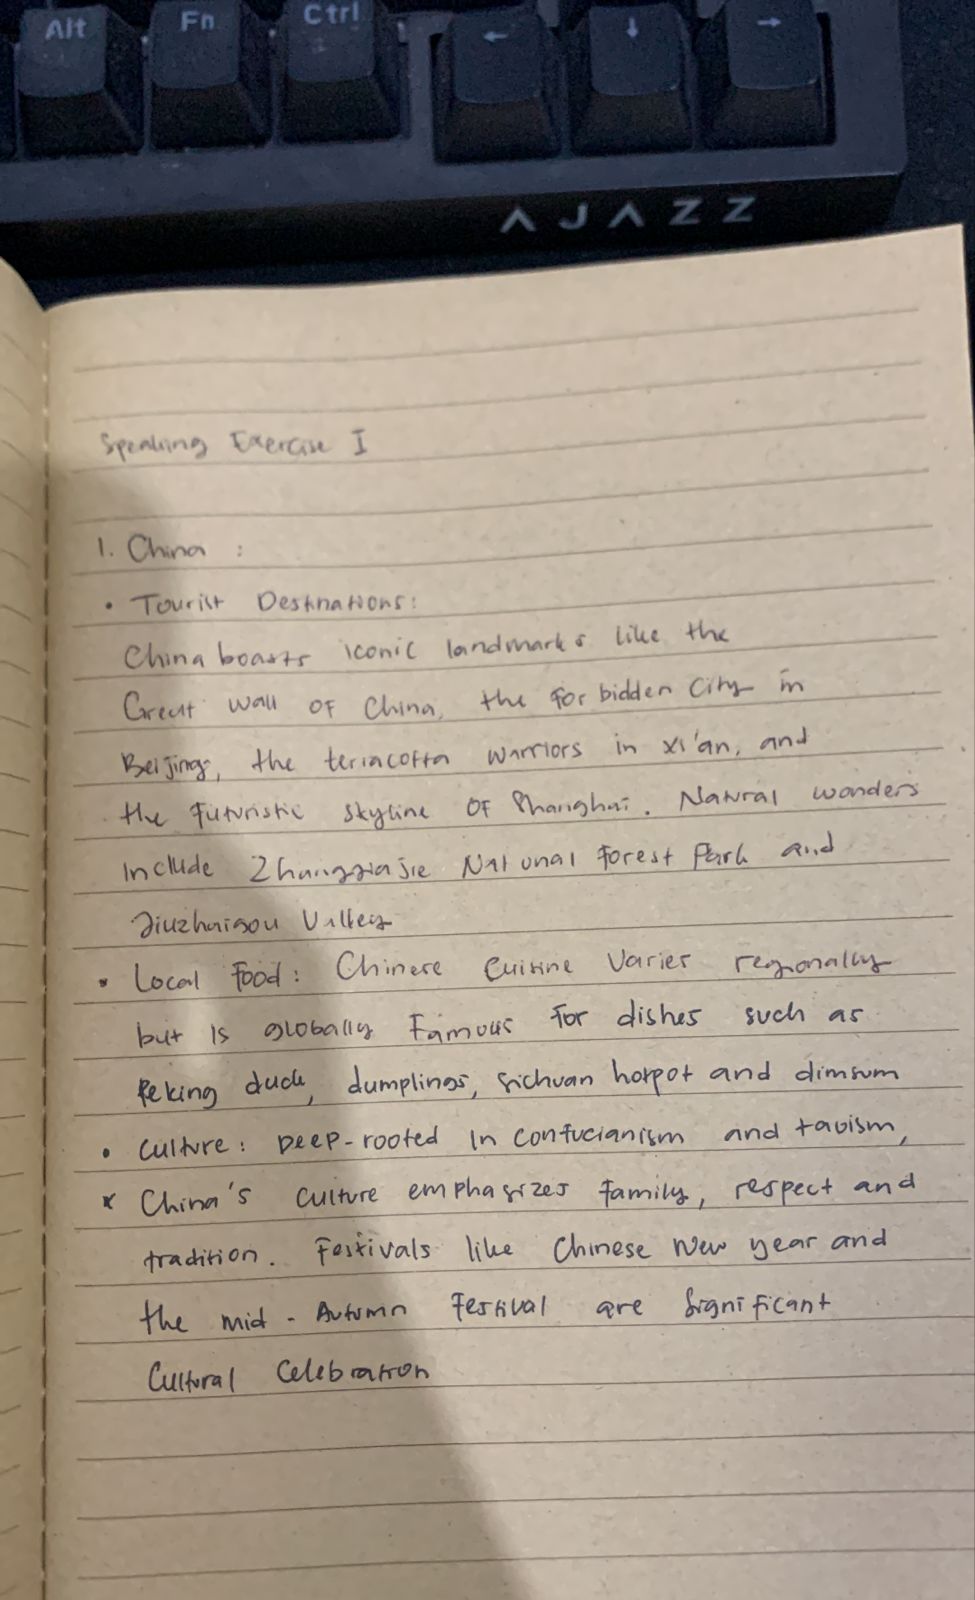 Alt Fn Ctrl ← ↓ →
AJAZZ
Speaking Exercise I
1. China :
• Tourist Destinations:
China boasts iconic landmarks like the
Great Wall of China, the Forbidden City in
Beijing, the terracotta warriors in xi'an, and
the Futuristic skyline of Shanghai. Natural wonders
Include Zhangjiajie National Forest Park and
Jiuzhaigou Valley
• Local Food: Chinese Cuisine Varies regionally
but Is globally Famous For dishes such as
Peking duck, dumplings, sichuan hotpot and dimsum
• Culture: Deep-rooted In confucianism and taoism,
x China's culture emphasizes family, respect and
tradition. Festivals like Chinese New year and
the mid - Autumn Festival are Significant
Cultural Celebration